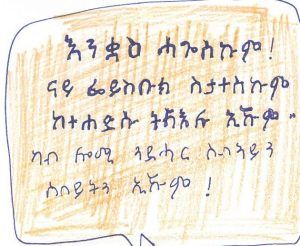 እንቋዕ ሓጎሰኩም!
ናይ ፌይስቡክ ስታተስኩም
ከተሐድሱ ትኽእሉ ኢኹም።
ካብ ሎሚ ንደሓር ሰብኣይን
ሰበይትን ኢኹም!